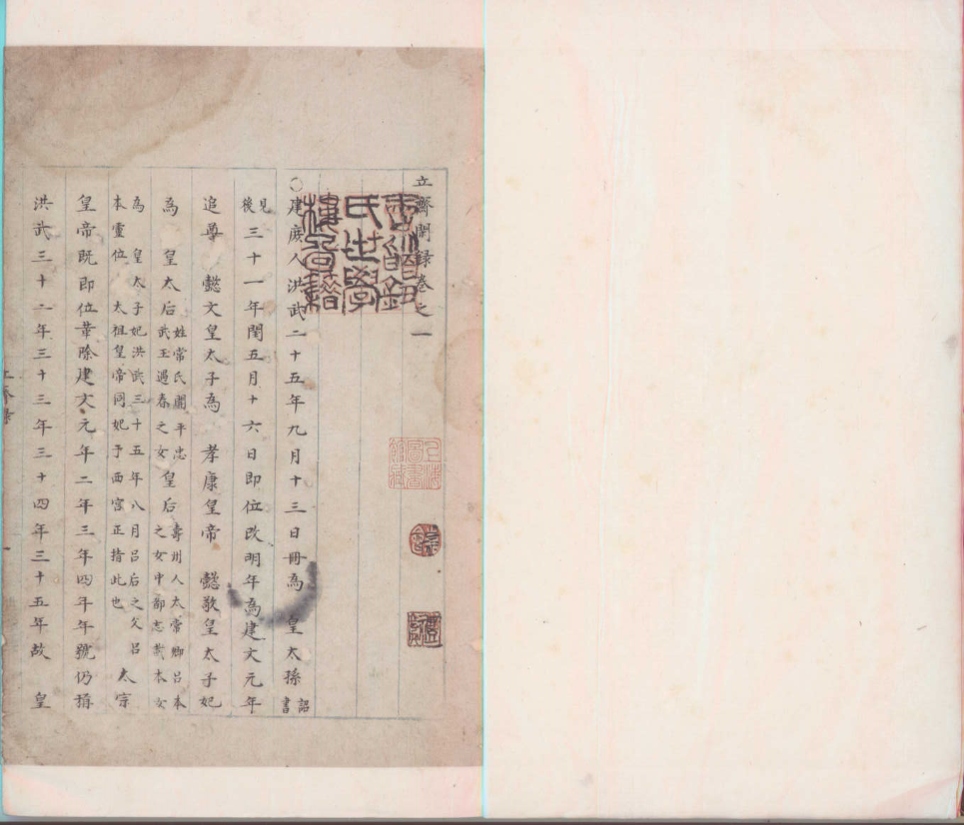 立齋閒録卷之一
會稽鈕
氏世學
樓圖籍
○建庶人洪武二十五年九月十三日冊為 皇太孫詔書
見後三十一年閏五月十六日即位改明年為建文元年
追尊 懿文皇太子為 孝康皇帝 懿敬皇太子妃
為 皇太后姓常氏開平忠武王遇春之女皇后壽州人太常卿吕本之女中都志載本女
為 皇太子妃洪武三十五年八月吕后之父吕本靈位 太祖皇帝同妃于西宮正指此也 太宗
皇帝既即位革除建文元年二年三年四年年號仍稱
洪武三十二年三十三年三十四年三十五年故 皇